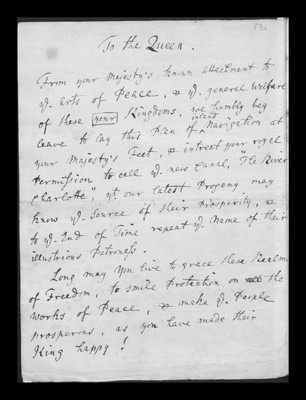 To the Queen.
From your Majesty's known attachment to
ye. arts of Peace, & ye. general Welfare
of these your Kingdoms, we humbly beg
leave to lay this Plan of inland Navigation at
your Majesty's Feet, & intreat your royal
Permission to call ye. new Canal, "The River
Charlotte", yt. our latest Progeny may
know ye. Source of their Prosperity, &
to ye. End of Time repeat ye. Name of their
illustrious Patroness.
Long may you live to grace these Realms
of Freedom, to smile Protection on the
works of Peace, & make ye. People
prosperous, as you have made their
King happy!